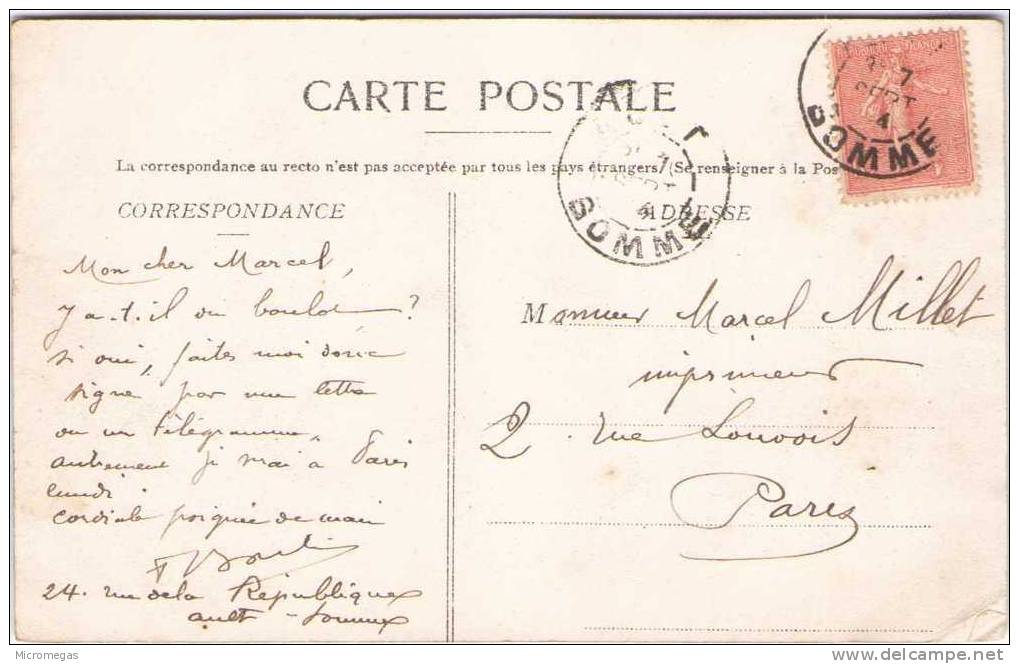 CARTE POSTALE
La correspondance au recto n'est pas acceptée par tous les pays étrangers (Se renseigner à la Pos
CORRESPONDANCE
ADRESSE
RÉPUBLIQUE FRANÇAISE
7
SEPT
4
SOMME
SOMME
Mon cher Marcel,
y a-t-il du boulot ?
si oui, faites moi donc
signe, par une lettre
ou un télégramme,
autrement j'irai à Paris
lundi
Cordiale poignée de main
24. rue de la République
ault - Somme
Monsieur Marcel Millet
imprimeur
2. rue Louvois
Paris
Micromegas
www.delcampe.net